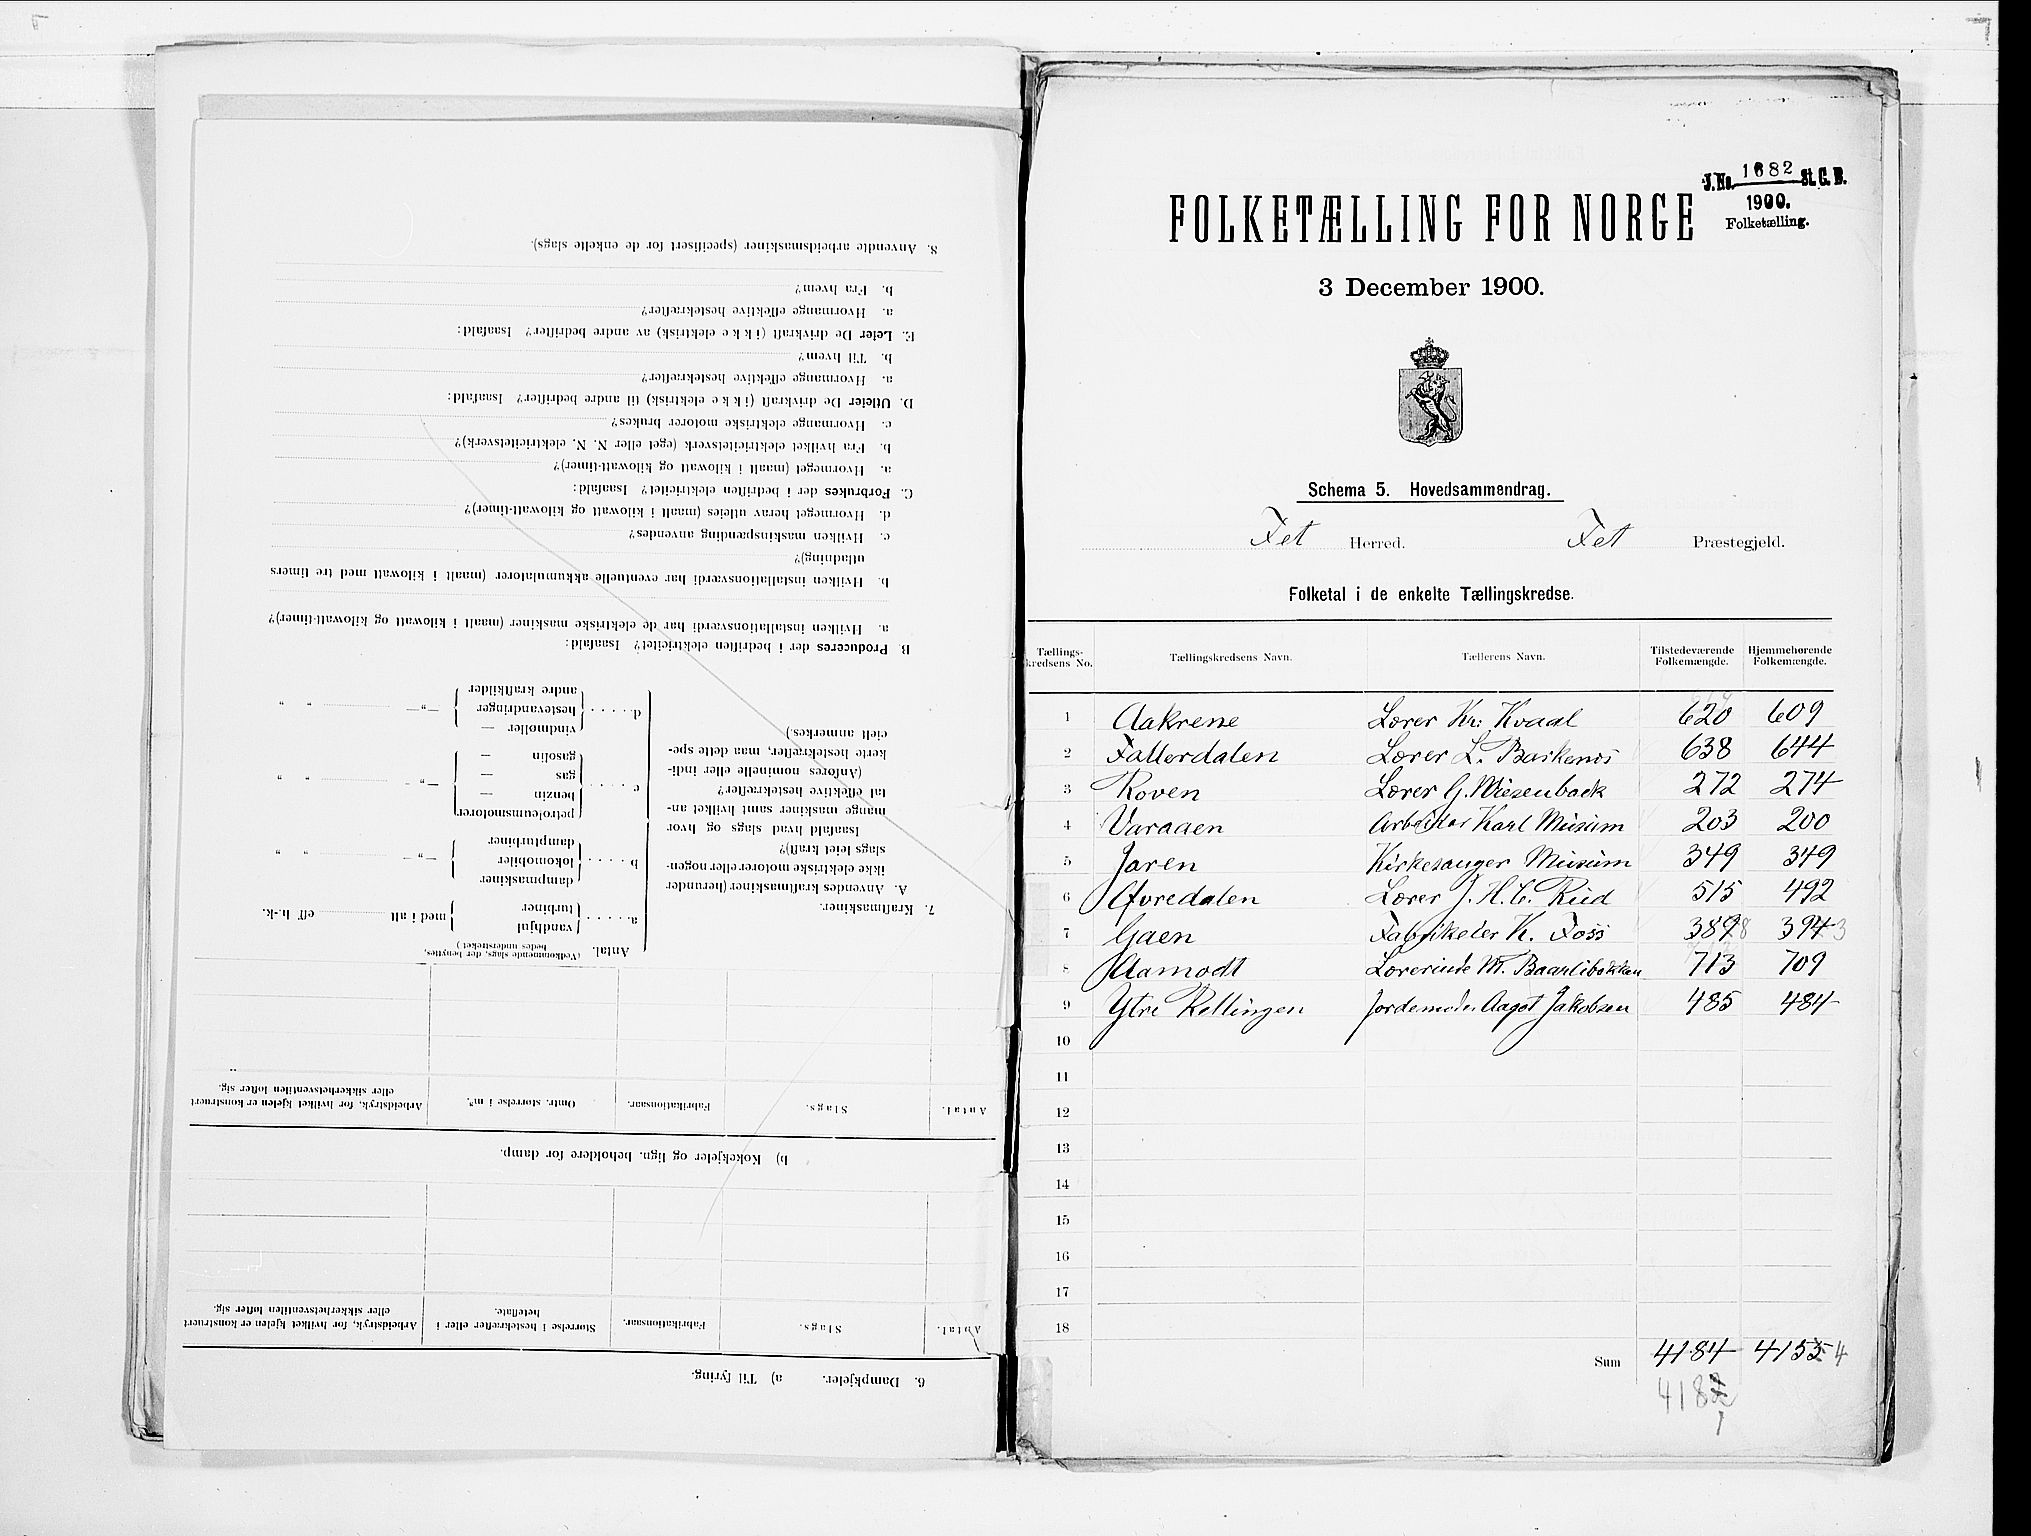 8. Anvendte arbeidsmaskiner (specifisert for de enkelte slags).
b. Fra hvem?
a. Hvormange effektive hestekræfter?
E. Leier De drivkraft (ikke elektrisk) av andre bedrifter? Isaafald:
b. Til hvem?
a. Hvormange effektive hestekræfter?
D. Utleier De drivkraft (ikke elektrisk) til andre bedrifter? Isaafald:
c. Hvormange elektriske motorer brukes?
b. Fra hvilket elektricitetsverk (eget eller N. N. elektricitetsverk)?
a. Hvormeget (maalt i kilowatt og kilowatt-timer)?
C. Forbrukes der i bedriften elektricitet? Isaafald:
d. Hvormeget herav utleies (maalt i kilowatt og kilowatt-timer)?
c. Hvilken maskinspænding anvendes?
utladning)?
b. Hvilken installationsværdi har eventuelle akkumulatorer (maalt i kilowatt med tre timers
a. Hvilken installationsværdi har de elektriske maskiner (maalt i kilowatt og kilowatt-timer)?
B Produceres der i bedriften elektricitet? Isaafald:
andre kraftkilder
d. . . . . hestevandringer —„— „ „
vindmøller —
cielt anmerkes.)
gasolin —
kerte hestekræfter, maa dette spe-
gas —
(Anføres nominelle eller indi-
c . . . . benzin — —„— „ „
tal effektive hestekræfter?
petroleumsmotorer
mange maskiner samt hvilket an-
Isaafald hvad slags og hvor
dampturbiner
slags leiet kraft)?
b . . . . lokomobiler —„— „ „
ikke elektriske motorer eller nogen-
dampmaskiner
A. Anvendes kraftmaskiner (herunder
turbiner
7. Kraftmaskiner.
a. . . . . med i alt eff h.-k.
vandhjul
Antal. (Vedkommende slags, der benyttes, bedes understreket.)
Antal. Slags. Fabrikationsaar. Omtr. størrelse i m³. Arbeidstryk, for hvilket kjelen er konstruert eller sikkerhetsventilen løfter sig.
b) Kokekjeler og lign. beholdere for damp.
Antal. Slags. Fabrikationsaar. Størrelse i hestekræfter eller i heteflate. Arbeidstryk, for hvilket kjelen er konstruert eller sikkerhetsventilen løfter sig.
6. Dampkjeler. a) Til fyring.
J. No. 1682 St. C. B.
1900.
Folketælling.
FOLKETÆLLING FOR NORGE
3 December 1900.
Schema 5. Hovedsammendrag.
Fet Herred. Fet Præstegjeld.
Folketal i de enkelte Tællingskredse.
Tællings-kredsens No. Tællingskredsens Navn. Tællerens Navn. Tilstedeværende Folkemængde. Hjemmehørende Folkemængde.
1 Aakrene Lærer Kr. Kvaal 620 609
2 Fallerdalen Lærer L. 638 644
3 Roven Lærer G. Wiesenback 272 274
4 Varaaen Arbeider Karl Musum 203 200
5 Jaren Kirkesanger Musum 349 349
6 Ovredalen Lærer J. H. C. Rud 515 492
7 Gaen Fabrikeier K. Foss 389 8 394 3
8 Aamodt Lærerinde M. Baarlibakken 713 709
9 Ytre Rellingen Jordemoder Aagot Jakobsen 485 484
10
11
12
13
14
15
16
17
18
Sum 4184 4155 4
418